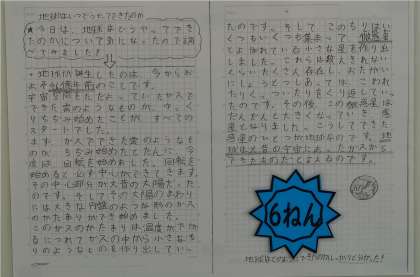 地球はいつどうやってできたのか
★今日は、地球はどうやってでき
たのかについて気になったので調
べてみました!
地球が誕生したのは、今からお
よそ46億年前のことです。
宇宙をただよっていたガスで
できた雲のようなものが、ゆっく
りちぢみ始めたことが、すべての
スタートでした。
まず、ガスでできた雲のようなも
のが、ちぢみ始めたとたんに、今
度は、回転を始めました。回転を
始めると、真ん中に
その中心部分が大昔の太陽だった
のです。そしてその太陽のまわり
には大きな円盤のような形のガス
のかたまりができ始めました。
このガスのかたまりは温度が下が
るにつれてガスの中から小さなち
りのようなものを作り出してい
たのです。そして、このちりはい
くつもいくつも集まって、微惑星
とよばれている小さな星を作り出
しました。これらは数えきれない
くらいたくさん存在し、おたがい
にしょうとつしてはこわれ、
くっついたりをくり返していっ
たのです。その後、この微惑星は
だんだんと大きくなっていき、惑
星となりました。こうしてできた
惑星のひとつが地球なのです。地
球は大昔の宇宙にあったガスから
できたものだと言えるのです。
16ねん